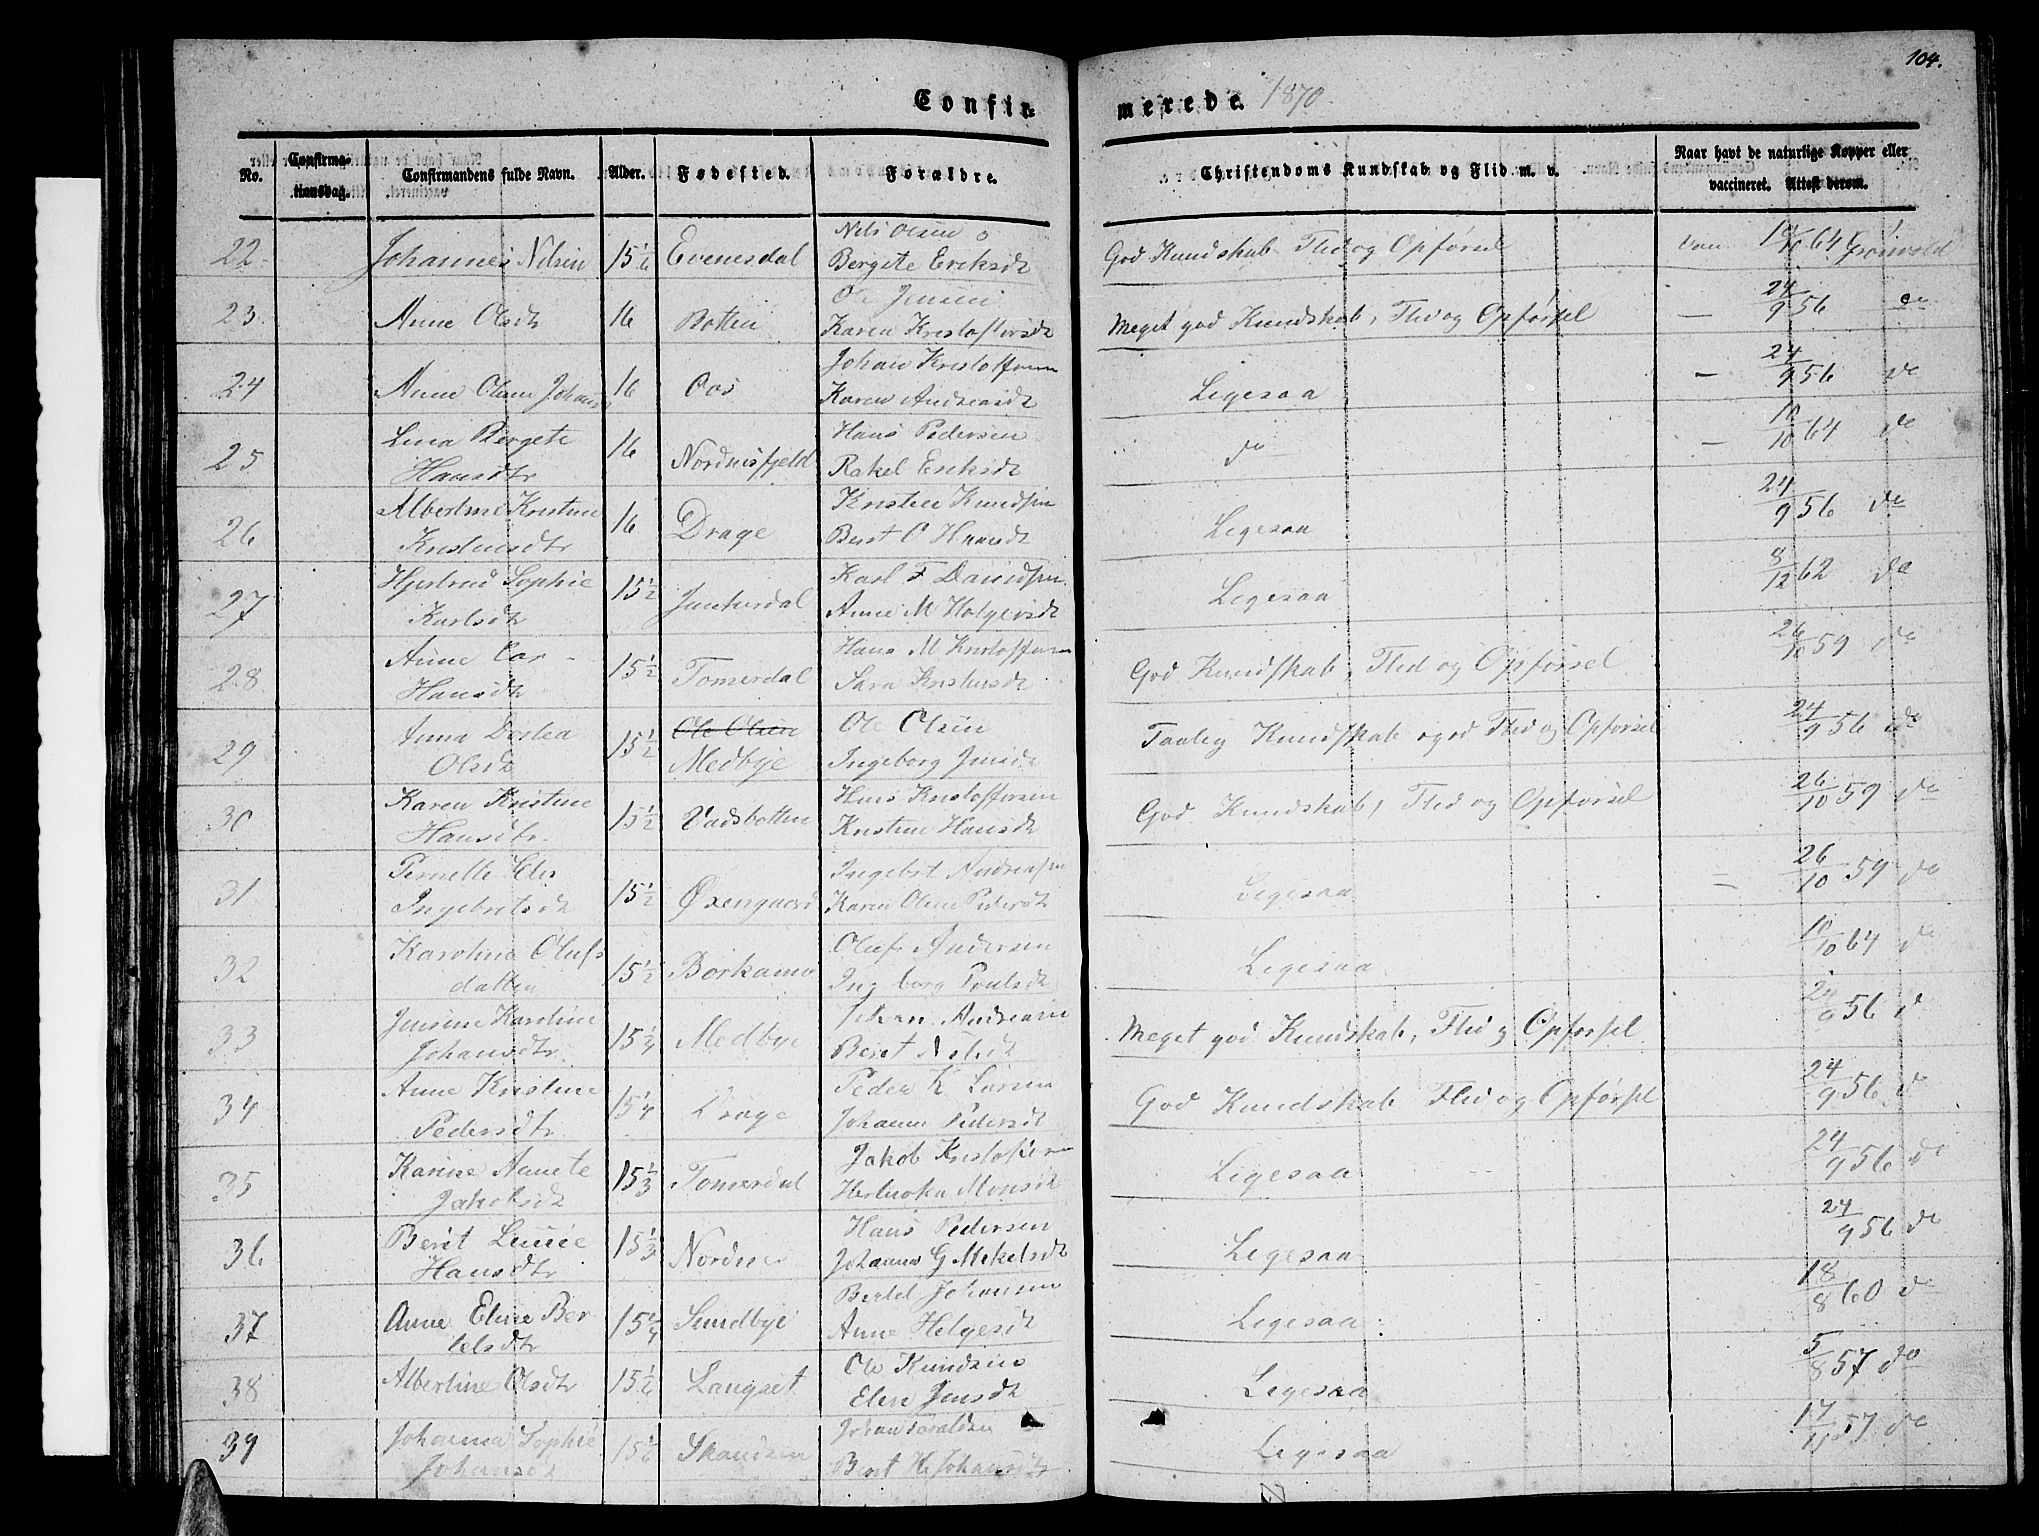 104.
Confir-
merede. 1870.
No.
Confirma-
tionsdag.
Confirmandens fulde Navn.
Alder.
Fødested.
Forældre.
Christendoms Kundskab og Flid m. v.
Naar havt de naturlige Kopper eller
vaccineret. Attest derom.
22 Johannes Nilsen 15 1/6 Evenesdal Nils Olsen
Bergete Eriksdt God Kundskab Flid og Opførsel 10/10 64 Grønvold
23 Anne Olsdtr 16 Botten Ole Jensen
Karen Kristoffersdt Meget god Kundskab, Flid og Opførsel 24/9 56 do
24 Anne Oline Johans 16 Oos Johan Kristoffersen
Karen Andreasdt Ligesaa 24/9 56 do
25 Lina Bergete
Hansdtr 16 Nordnesfjeld Hans Pedersen
Rakel Eriksdt do 10/10 64 do
26 Albertine Kristine
Kristensdtr 16 Drage Kristen Knudsen
Berit O Hansdt Ligesaa 24/9 56 do
27 Hjertrud Sophie
Karlsdt 15 1/2 Junkerdal Karl F Davidsen
Anne M Holgersdt Ligesaa 8/12 62 do
28 Anne
Hansdtr 15 1/2 Tomerdal Hans M Kristoffersen
Sara Kristensdt God Kundskab, Flid og Opførsel 26/10 59 do
29 Anna Dortea
Olsdt 15 1/2 Ole Olsen
Medbye Ole Olsen
Ingeborg Jensdt Taalig Kundskab og god Flid og Opførsel 24/9 56 do
30 Karen Kristine
Hansdtr 15 1/2 Vadsbotten Hans Kristoffersen
Kristine Hansdt God Kundskab, Flid og Opførsel 26/10 59 do
31 Pernelle
Ingebretsdt 15 1/2 Øxengaard Ingebrt Andreasen
Karen Oline Pedersdt Ligesaa 26/10 59 do
32 Karoline Olufs
datter 15 1/2 Borkamo Oluf Andersen
Ingeborg Poulsdt Ligesaa 10/10 64 do
33 Jensine Karoline
Johansdtr. 15 1/4 Medbye Johan Andreasen
Beret Nilsdt Meget god Kundskab, Flid og Opførsel 24/9 56 d
34 Anne Kristine
Pedersdtr 15 1/4 Drage Peder K Larsen
Johanne Pedersdt God Kundskab Flid og Opførsel 24/9 56 do
35 Karine Anneta
Jakobsdt 15 1/3 Tomerdal Jakob Kristofersen
Monsdt Ligesaa 24/9 56 do
36 Berit
Hansdtr 15 1/3 Nordnes Hans Pedersen
Johanna G Mikelsdt Ligesaa 24/9 56 do
37 Anne Eline Ber
telsdtr 15 1/4 Sundbye Bertel Johansen
Anne Helgesdt Ligesaa 18/8 60 do
38 Albertine Olsdtr 15 1/6 Langset Ole Knudsen
Elen Jensdt Ligesaa 5/8 57 do
39 Johanna Sophie
Johansdt 15 1/6 Johan
Beret H Johansdtr Ligesaa 17/11 57 do